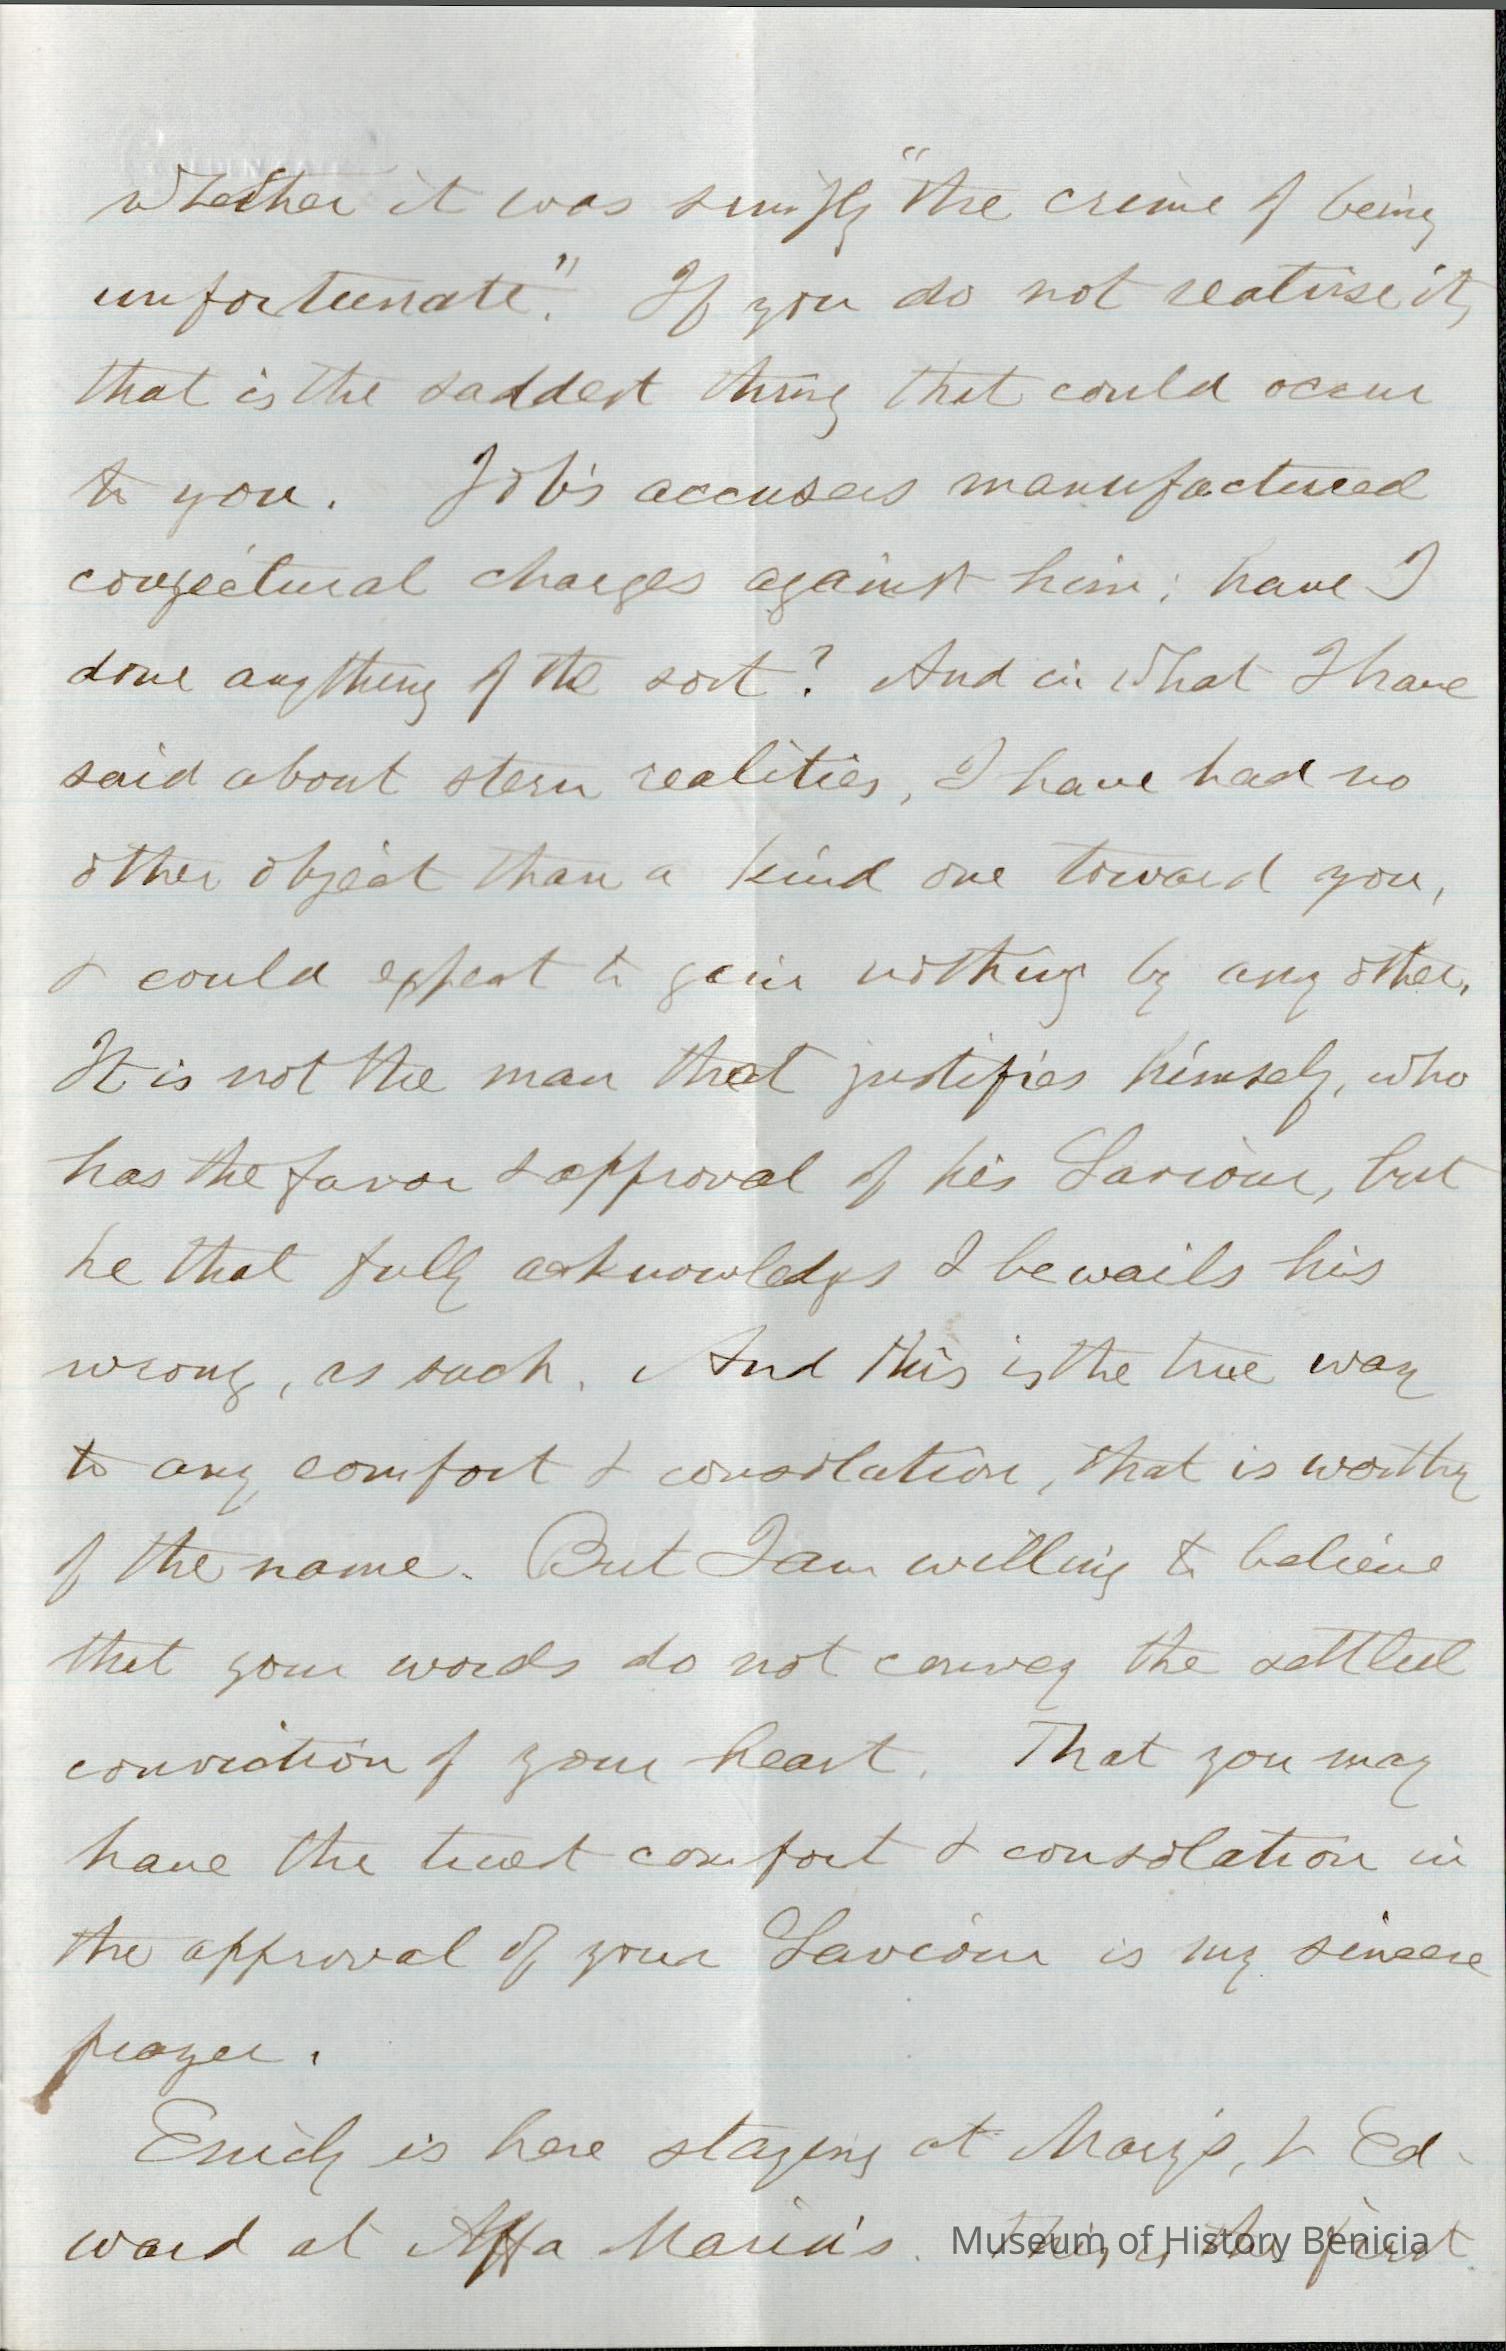 whether it was simply "the crime of being
unfortunate". If you do not realise it,
that is the saddest thing that could occur
to you. Job's accusers manufactured
conjectural charges against him; have I
done anything of the sort? And in what I have
said about stern realities, I have had no
other object than a kind one toward you,
& could expect to gain nothing by any other.
It is not the man that justifies himself, who
has the favor & approval of his Saviour, but
he that fully acknowledges & bewails his
wrong, as such. And this is the true way
to any comfort & consolation, that is worthy
of the name. But I am willing to believe
that your words do not convey the settled
conviction of your heart. That you may
have the truest comfort & consolation in
the approval of your Saviour is my sincere
prayer.
Emily is here staying at Mary's, & Ed-
ward at Affa Maria's. This is the first
Museum of History Benicia